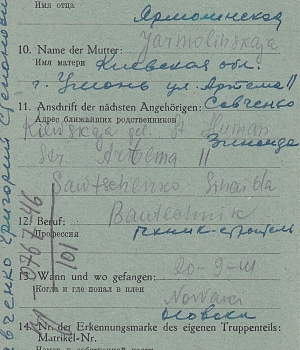 Имя отца
Ярмолинская
10. Name der Mutter: Jarmolinskaja
Имя матери Киевская обл.
г. Умань ул. Артема 11
11. Anschrift der nächsten Angehörigen: Савченко
Адрес ближайших родственников
Kiewskaja geb. st Human Зинаида
Str. Artema 11
Sawtschenko Sinaida
12. Beruf: Bautechnik
Профессия техник-строитель
13. Wann und wo gefangen: 20-9-41
Когда и где попал в плен
14. Nr. der Erkennungsmarke des eigenen Truppenteils:
Matrikel-Nr.
Григорий
101